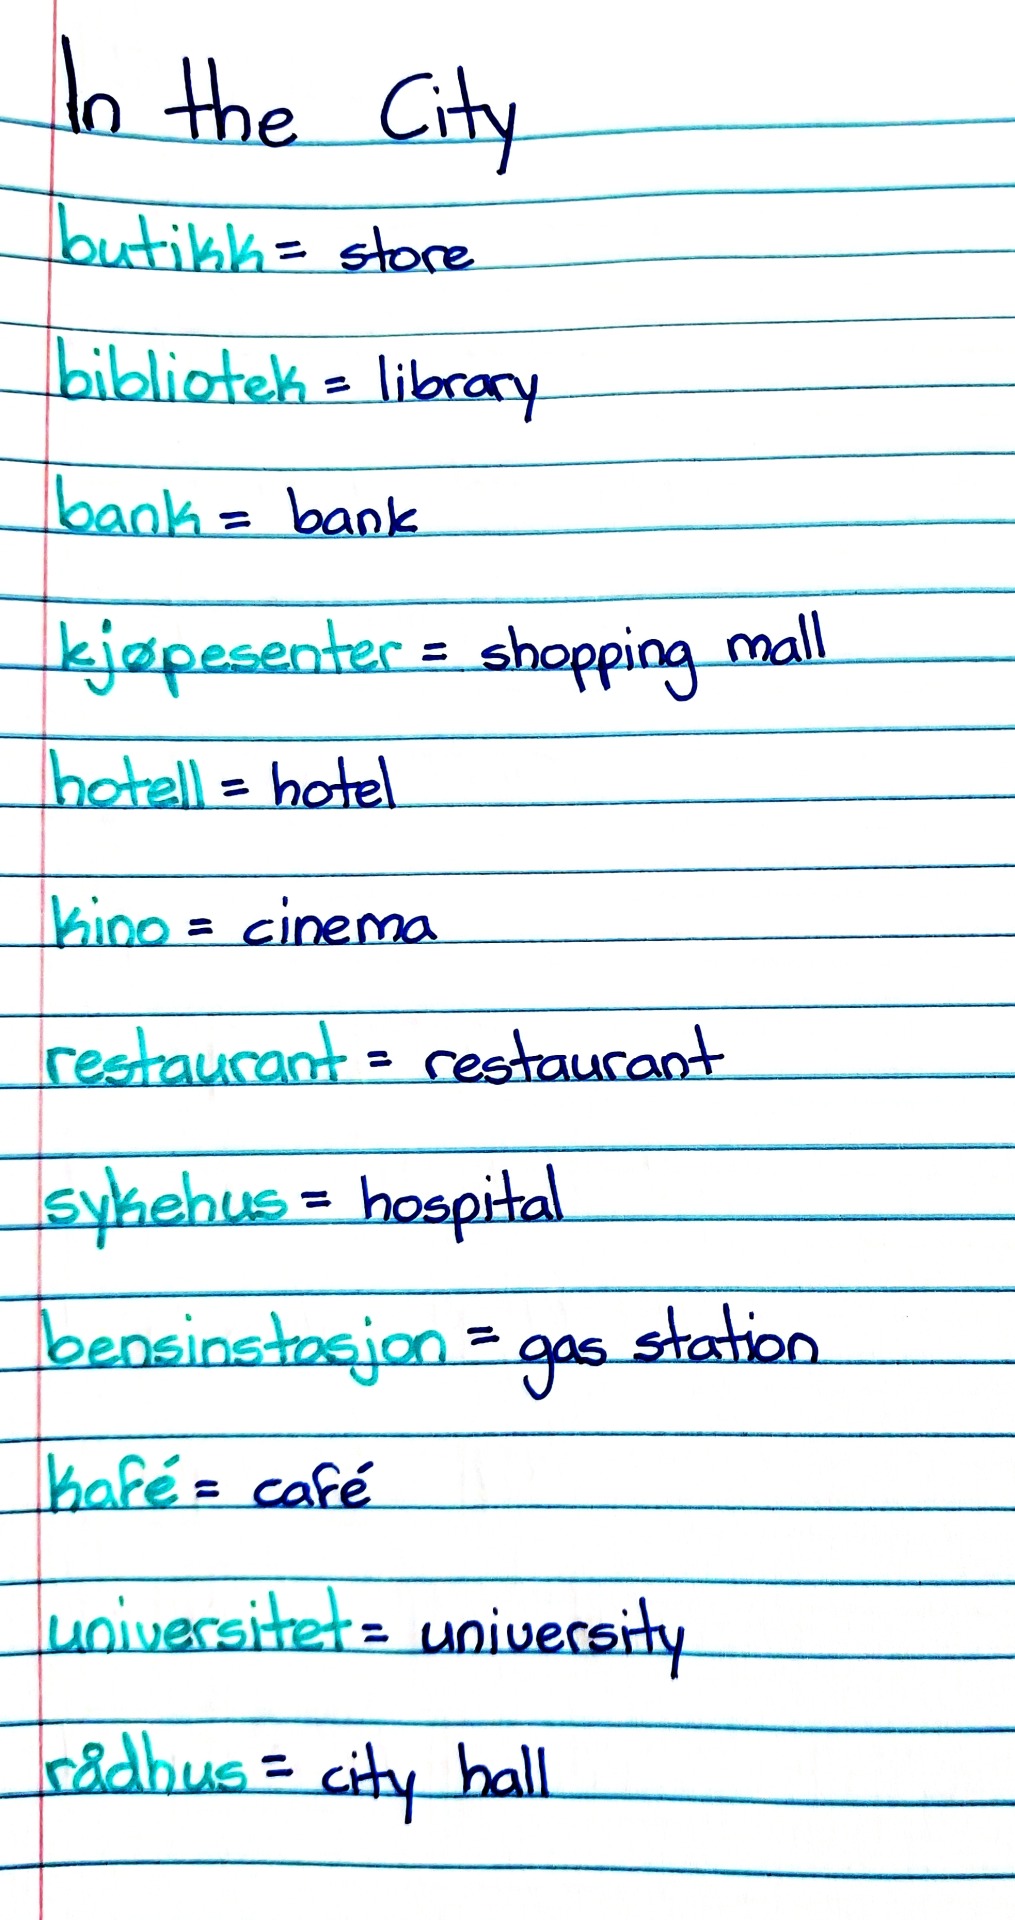 In the City
butikk = store
bibliotek = library
bank = bank
kjøpesenter = shopping mall
hotell = hotel
kino = cinema
restaurant = restaurant
sykehus = hospital
bensinstasjon = gas station
kafé = café
universitet = university
rådhus = city hall